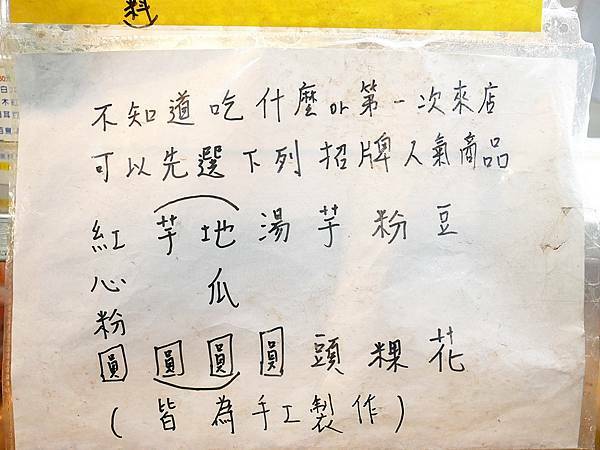 料
不知道吃什麼or第一次來店
可以先選下列招牌人氣商品
豆花
粉粿
芋頭
湯圓
地瓜圓
芋圓
紅心粉圓
(皆為手工製作)